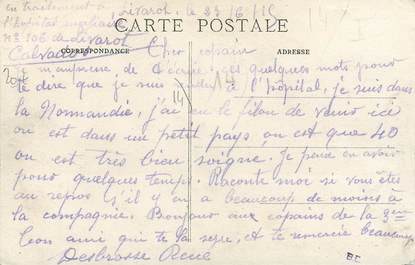 en traitement à
l'hôpital auxiliaire
N° 106 de Livarot
Calvados
Livarot, le 23/6/15
CARTE POSTALE
CORRESPONDANCE
ADRESSE
Cher copain
Je m'empresse de t'écrire ces quelques mots pour
te dire que je suis à l'hôpital, je suis dans
la Normandie, j'ai eu le filon de venir ici
on est dans un petit pays, on est que 40
on est très bien soigné. Je pense en avoir
pour quelques temps. Raconte moi si vous êtes
au repos et s'il y en a beaucoup de moisis à
la compagnie. Bonjour aux copains de la 3eme
ton ami qui te la serre, et te remercie beaucoup
Desbrosse René